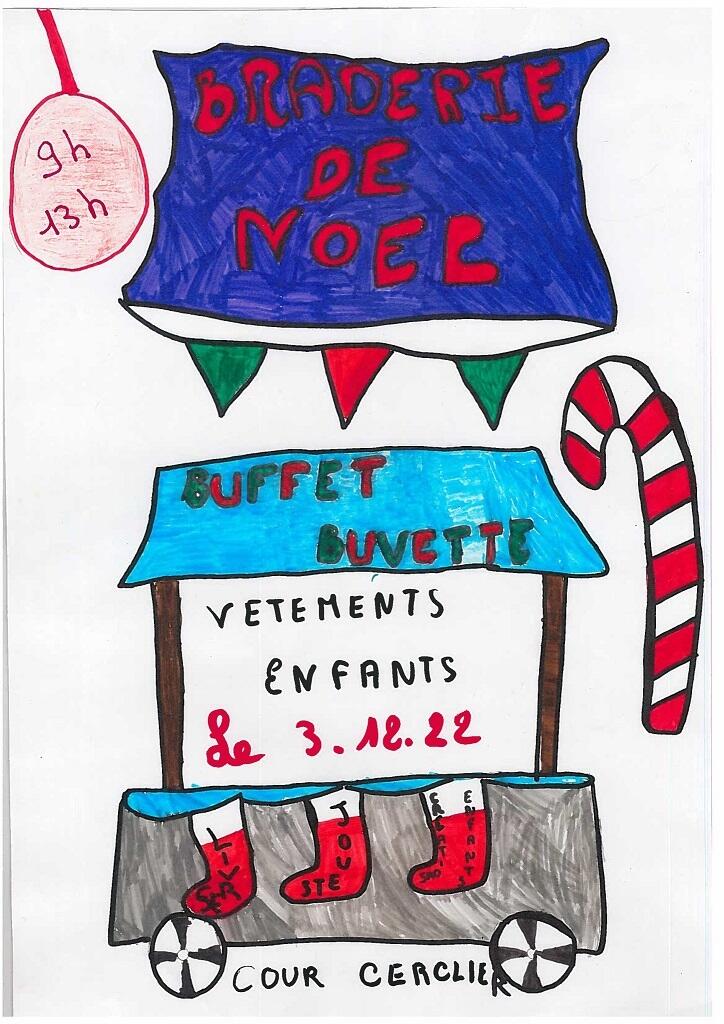 9h
13h
BRADERIE
DE
NOEL
BUFFET
BUVETTE
VETEMENTS
ENFANTS
Le 3.12.22
LIVRES
JOUETS
CREATIONS
ENFANTS
COUR CERCLIER